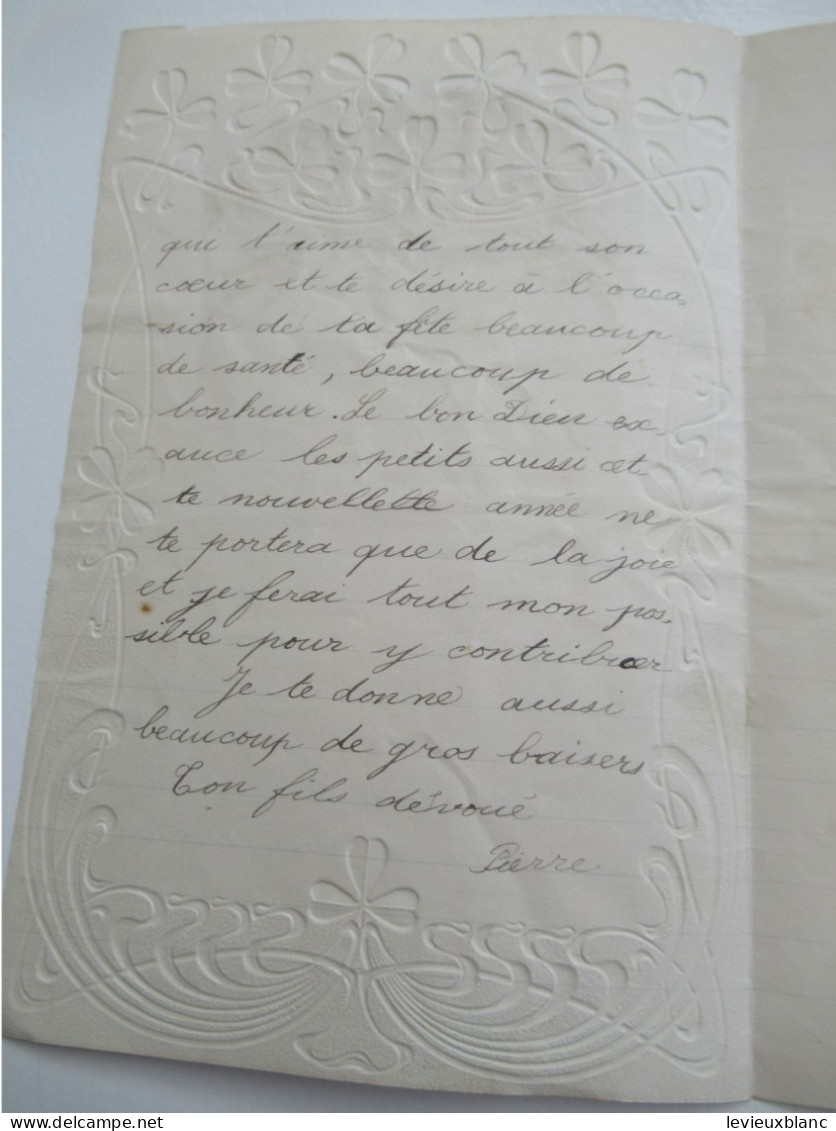 qui t'aime de tout son
cœur et te désire à l'occa
-sion de ta fête beaucoup
de santé, beaucoup de
bonheur. Le bon Dieu ex-
auce les petits aussi cet-
te nouvellette année ne
te portera que de la joie
et je ferai tout mon pos-
sible pour y contribuer
Je te donne aussi
beaucoup de gros baisers
Ton fils dévoué
Pierre
delcampe.net
levieuxblanc